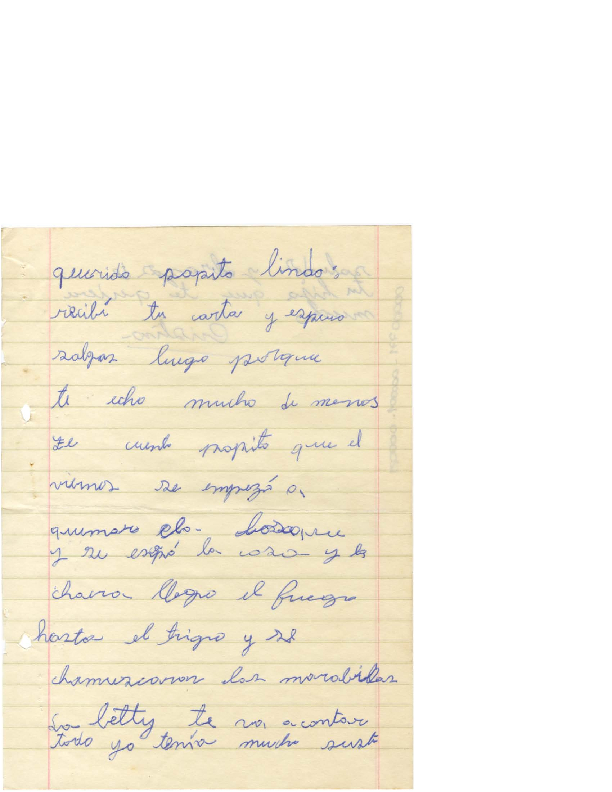 querido papito lindo:
recibí tu carta y espero
salgas luego porque
te echo mucho de menos
te cuento papito que el
viernes se empezó a
quemar el bosque
y se la casa y la
chacra llego el fuego
hasta el trigo y se
chamuscaron las marabillas
La betty te va a contar
todo yo tenía mucho susto